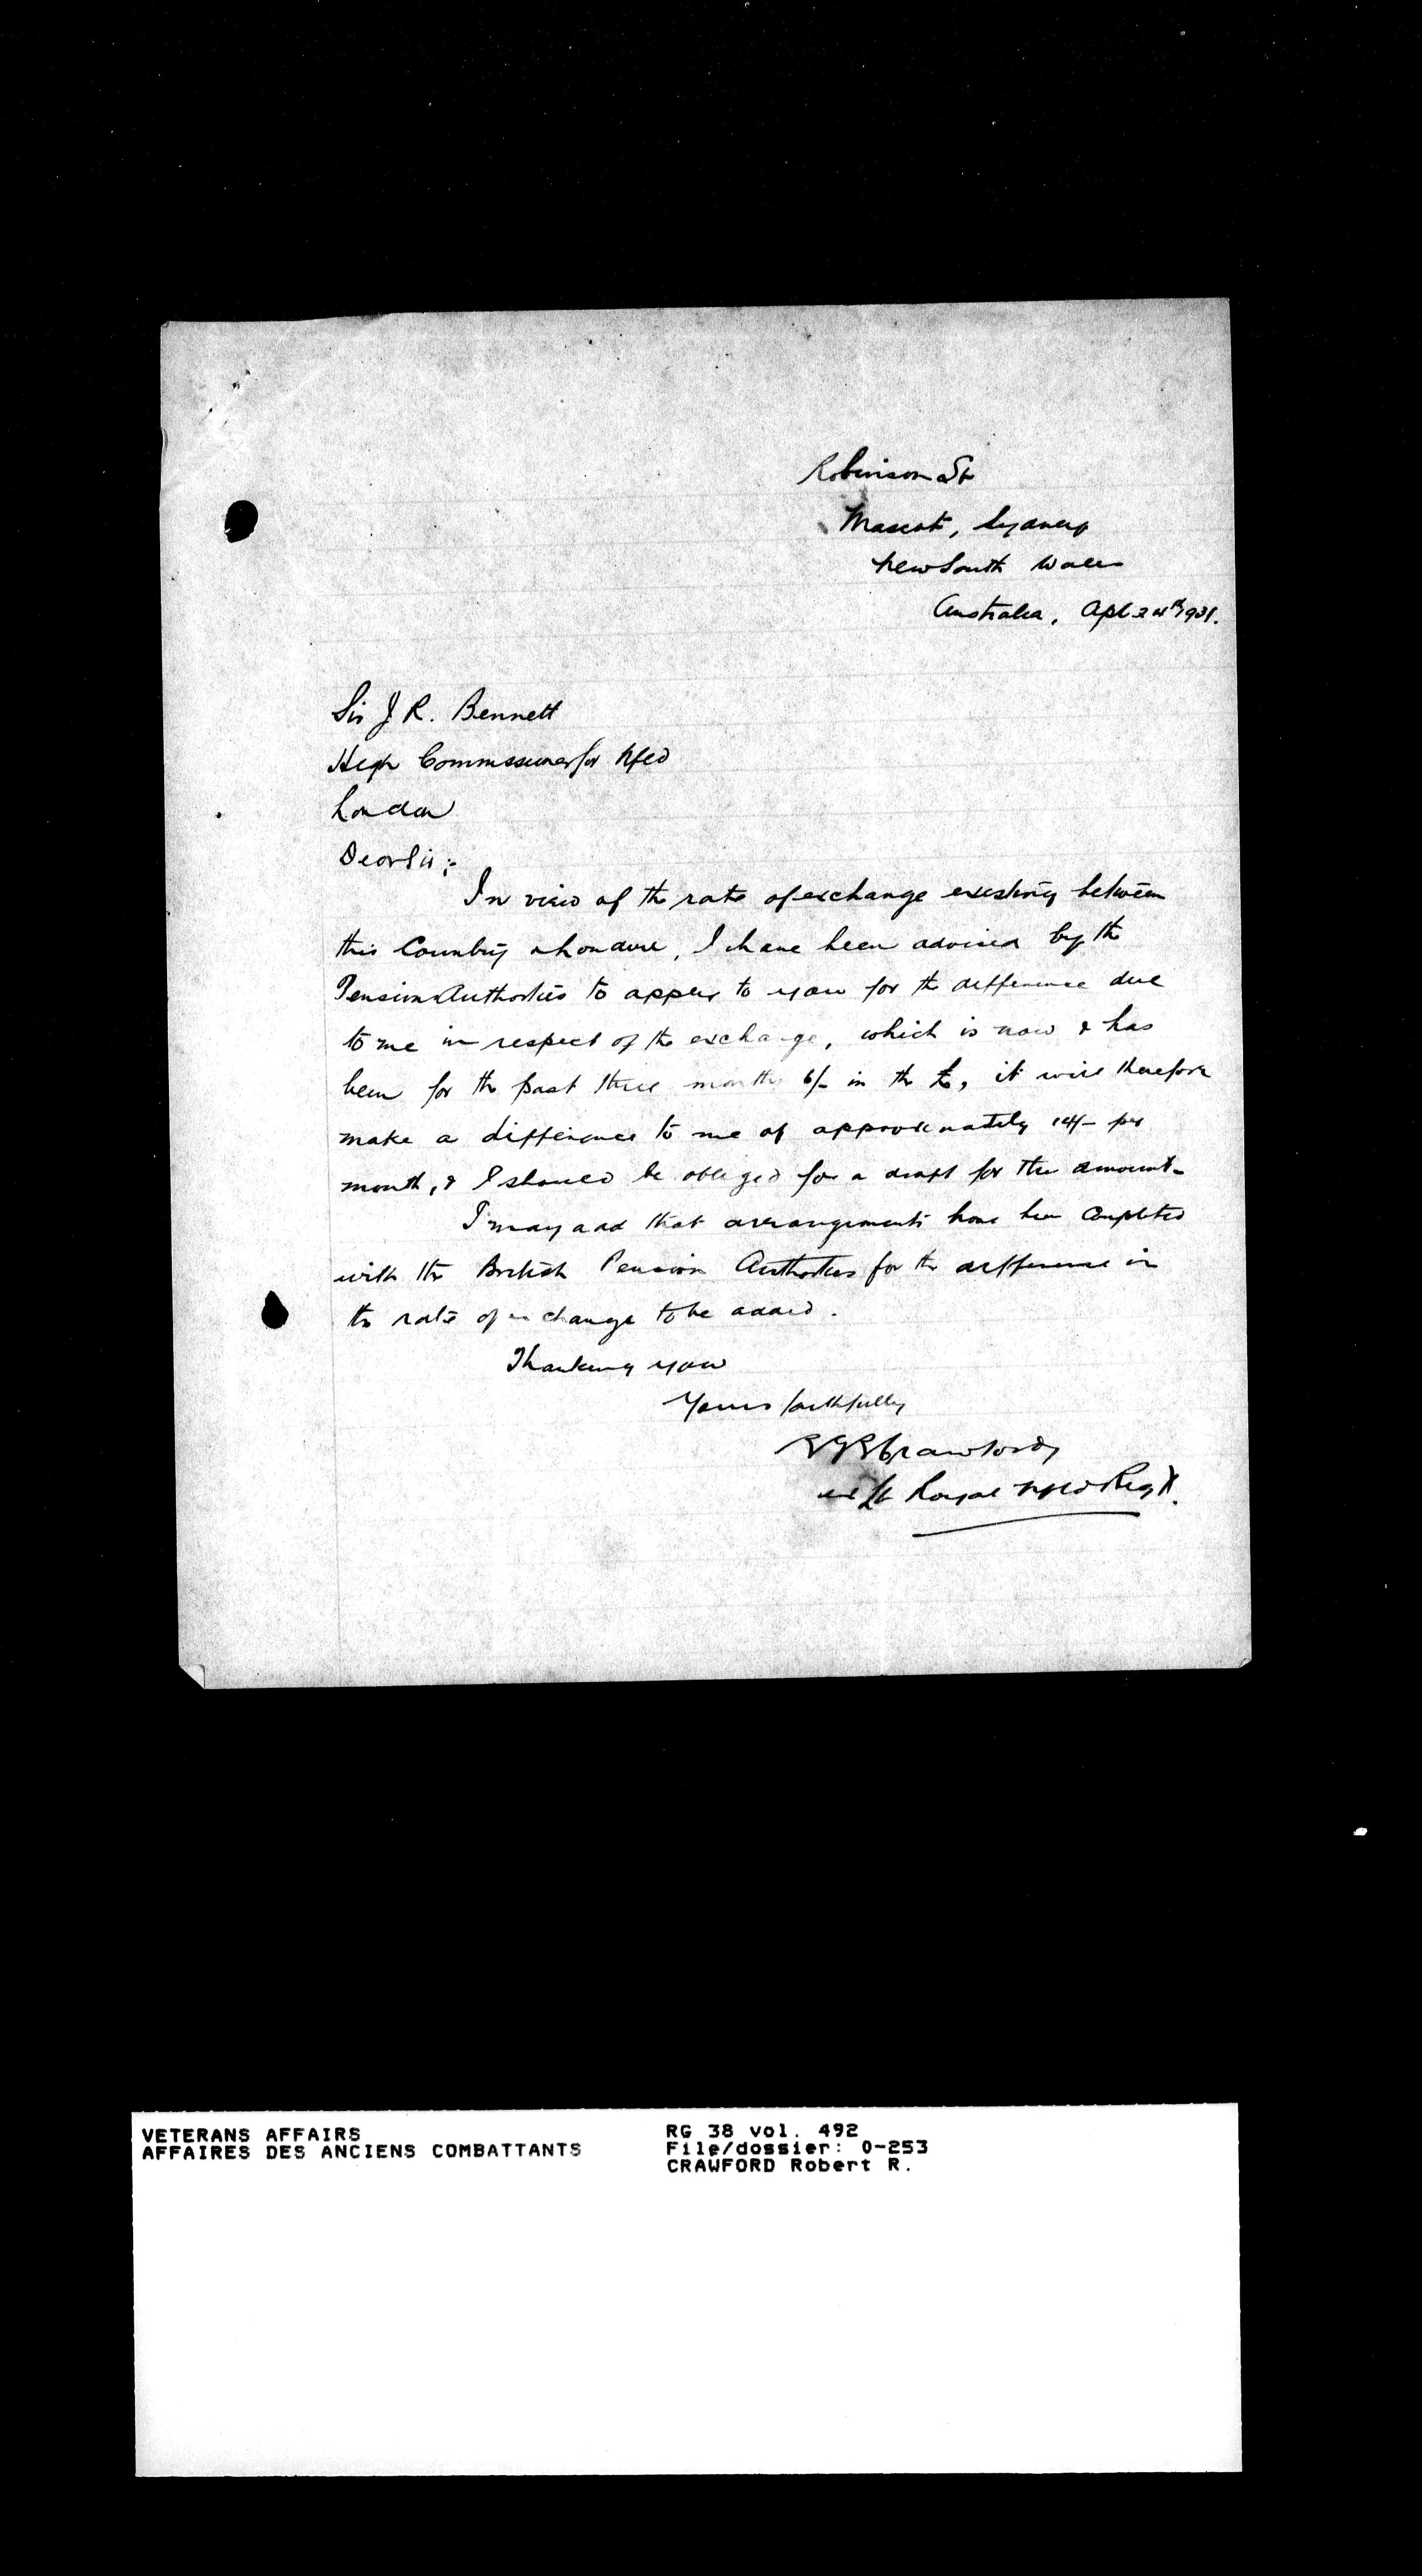 Robinson St
Mascot, Sydney
New South Wales
Australia, Apl 24th 1931.
Sir J R. Bennett
High Commissioner for Nfld
London
Dear Sir;
In view of the rate of exchange existing between
this Country & London, I have been advised by the
Pension Authorities to apply to you for the difference due
to me in respect of the exchange, which is now & has
been for the past three months 6/- in the £, it will therefore
make a difference to me of approximately per
month, & I should be obliged for a draft for the amount-
I may add that arrangements have been completed
with the British Pension Authorities for the difference in
the rate of exchange to be added.
Thanking you
Yours faithfully
Crawford
ex Lt Royal Nfld Regt.
VETERANS AFFAIRS
AFFAIRES DES ANCIENS COMBATTANTS
RG 38 vol. 492
File/dossier: 0-253
CRAWFORD Robert R.